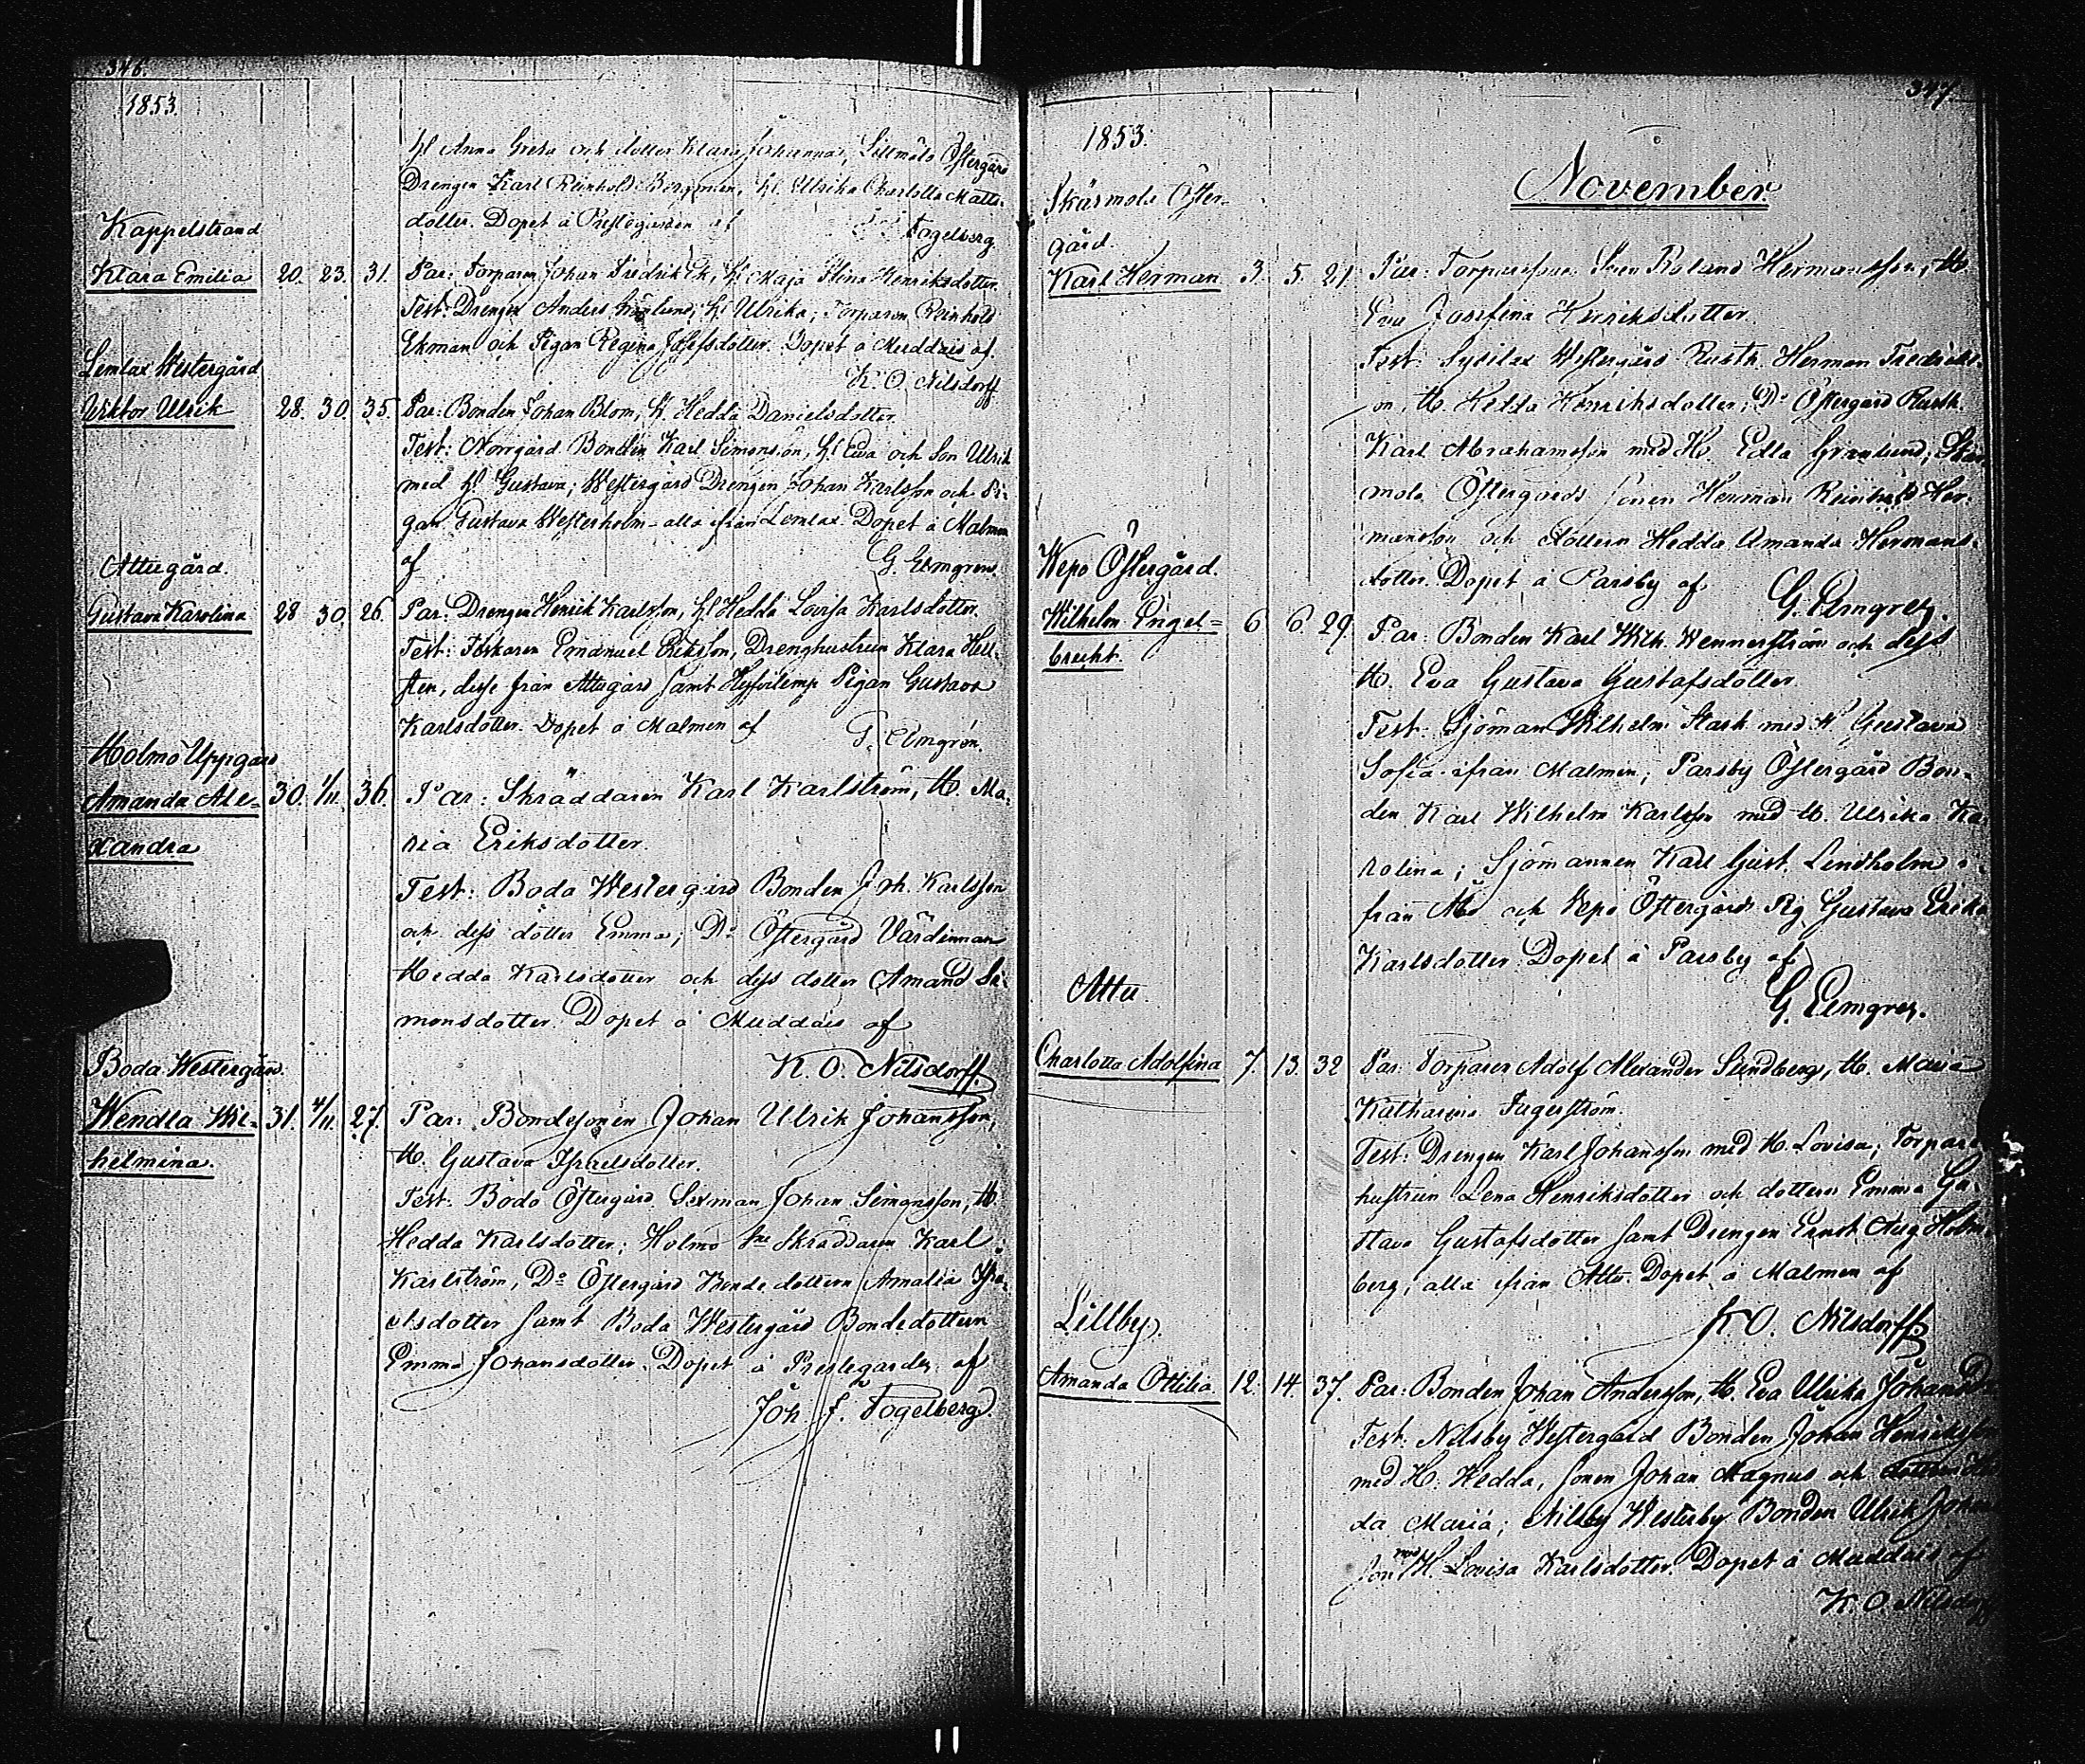 346.
1853.
H. Anna Greta och dotter Klara Johanna, Lillmälö Östergård
Drengen Karl Reinhold Bergman, H. Ulrika Charlotta Matts-
dotter. Dopet å Prestegården af Fogelberg.
Kappelstrand
Klara Emilia 20. 23. 31. Par: Torparen Johan Fredrik Ek, H. Maja Stina Henriksdotter.
Test: Drengen Anders, H. Ulrika; Torparen Reinhold
Ekman och Pigan Regina Josefsdotter. Dopet å Muddais af.
K. O. Nilsdorff
Lemlax Westergård
Viktor Ulrik 28. 30. 35. Par: Bonden Johan Blom, H. Hedda Danielsdotter.
Test: Norrgård Bonden Karl Simonsson, H. Eva och Son Ulrik
med H. Gustava; Westergård Drengen Johan Karlsson och Pi-
gan Gustava Westerholm alla ifrån Lemlax. Dopet å Malmen
af G. Elmgren.
Attugård.
Gustava Karolina 28 30 26. Par: Drengen Henrik Karlsson, H. Hedda Lovisa Karlsdotter.
Test: Fiskaren Emanuel Eriksson, Drenghustrun Klara Hell-
sten, desse från Attugård samt Pigan Gustava
Karlsdotter. Dopet å Malmen af G. Elmgren.
Holmo Uppgård
Amanda Ale- 30. 1/11. 36. Par: Skräddaren Karl Karlström, H. Ma-
xandra ria Eriksdotter.
Test: Boda Westergård Bonden Joh. Karlsson
och dess dotter Emma; Do Östergård Värdinnan
Hedda Karlsdotter och dess dotter Amand Si-
monsdotter. Dopet å Muddais af
K. O. Nilsdorff.
Boda Westergård.
Wendla Wil- 31. 4/11. 27. Par: Bondesonen Johan Ulrik Johansson,
helmina. H. Gustava Israelsdotter.
Test: Boda Östergård Sexman Johan Simonsson, H.
Hedda Karlsdotter; Holmo Skräddaren Karl
Karlström, Do Östergård Bondedottern Amalia Isra-
elsdotter samt Boda Westergård Bondedottern
Emma Johansdotter. Dopet å Prestegården af
Joh. F. Fogelberg.
347.
1853.
November.
Skärmola Öster-
gård.
Karl Herman 3. 5. 21. Par: Torparesonen Sven Roland Hermansson, H.
Eva Josefina Henriksdotter.
Test: Sydilax Westergård Rusth. Herman Fredriks-
on, H. Hedda Henriksdotter; Do Östergård Rusth.
Karl Abrahamsson med H. Edla Granlund; Skär-
mola Östergårds sonen Herman Reinhold Her-
mansson och dottern Hedda Amanda Hermans-
dotter. Dopet å Parsby af G. Elmgren.
Wepo Östergård.
Wilhelm Engel= 6 6. 29. Par: Bonden Karl Wilh. Wennerström och dess
brecht. H. Eva Gustava Gustafsdotter.
Test: Sjöman Wilhelm Stark med H. Gustava
Sofia ifrån Malmen; Parsby Östergård Bon-
den Karl Wilhelm Karlsson med H. Ulrika Ka-
rolina; Sjömannen Karl Gust. Lindholm i-
från Åbo och Wepo Östergårds Pig. Gustava Erika
Karlsdotter. Dopet å Parsby af
G. Elmgren.
Attu.
Charlotta Adolfina 7. 13. 32 Par: Torparen Adolf Alexander Sundberg, H. Maria
Katharina Fagerström.
Test: Drengen Karl Johansson med H. Lovisa; Torpare
hustrun Lena Henriksdotter och dottern Emma Gu-
stava Gustafsdotter samt Drengen Ernst Aug. Holm-
berg, alla ifrån Attu. Dopet å Malmen af
K. O. Nilsdorff.
Lillby.
Amanda Ottilia 12. 14. 37. Par: Bonden Johan Andersson, H. Eva Ulrika JohansD
Test: Nilsby Westergård Bonden Johan Henriksson
med H. Hedda, sonen Johan Magnus och dottern
da Maria; Nilsby Westerby Bonden Ulrik Johans-
son med H. Lovisa Karlsdotter. Dopet å Muddais af
K. O. Nilsdorff